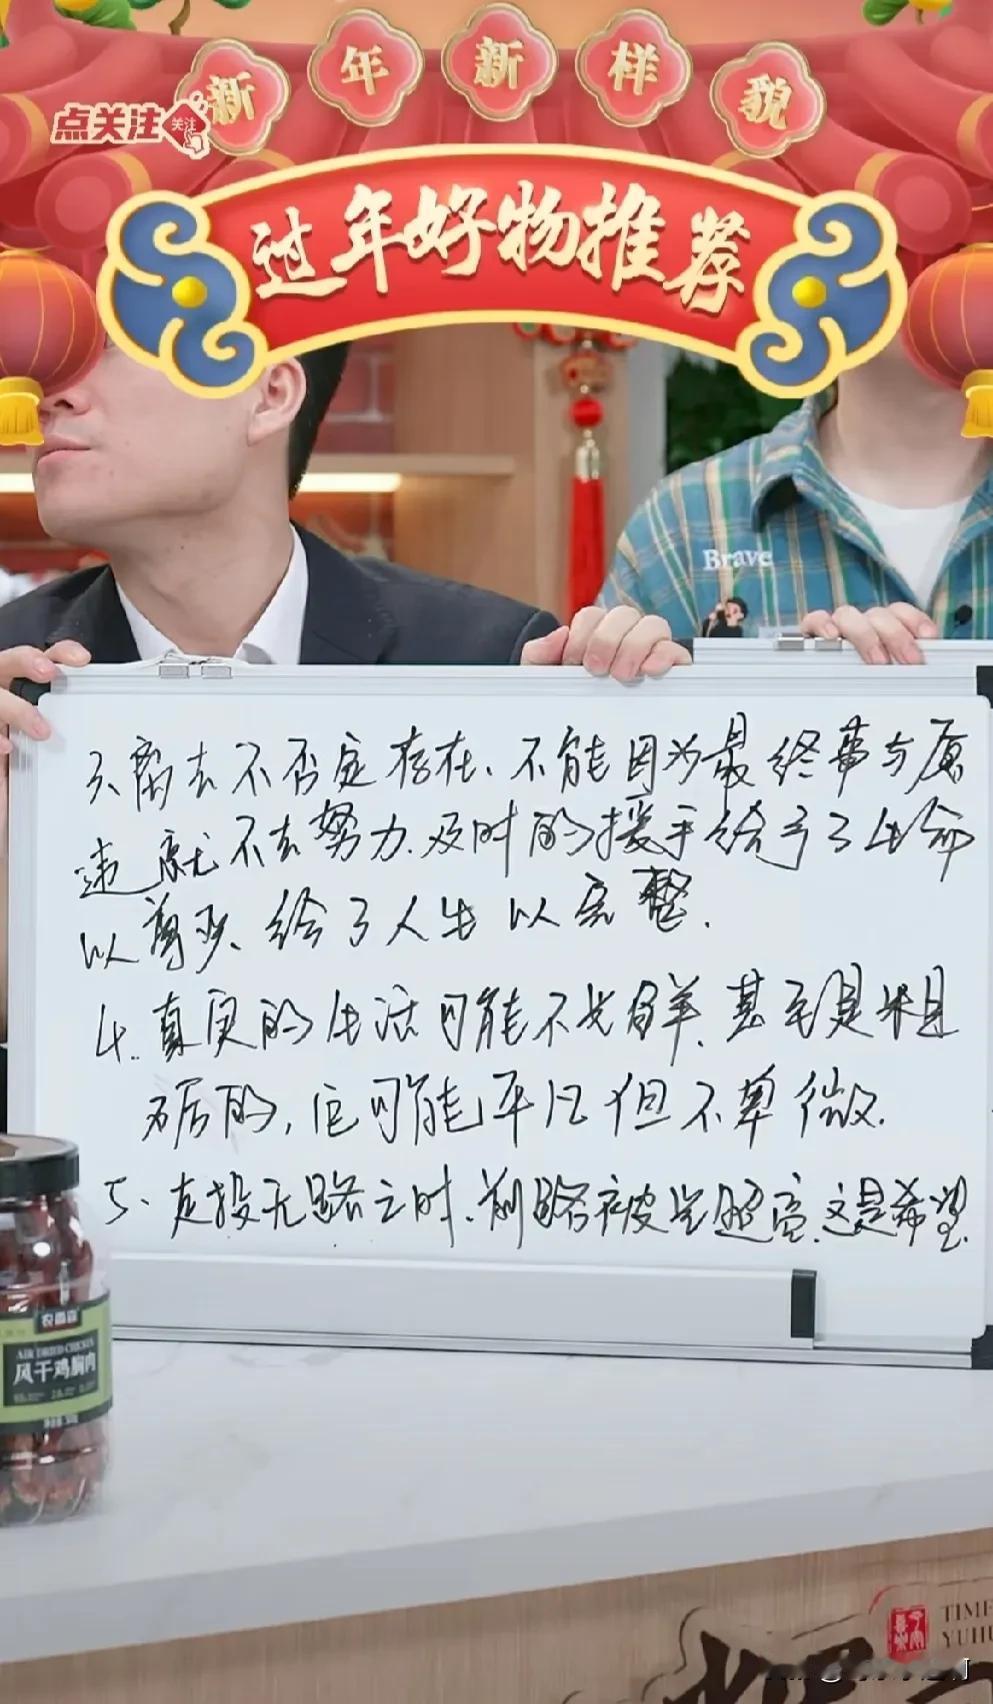 新年新样貌
点关注
关注
过年好物推荐
Brave
离去不否定存在、不能因为最终事与愿
违就不去努力.及时的援手给予了生命
以尊严、给了人生以完整.
4.真实的生活可能不光鲜、甚至是粗
砺的,它可能平凡但不卑微.
5、走投无路之时、前路被光照亮、这是希望.
农香森
AIR DRIED CHICKEN
风干鸡胸肉
TIME
YUHU